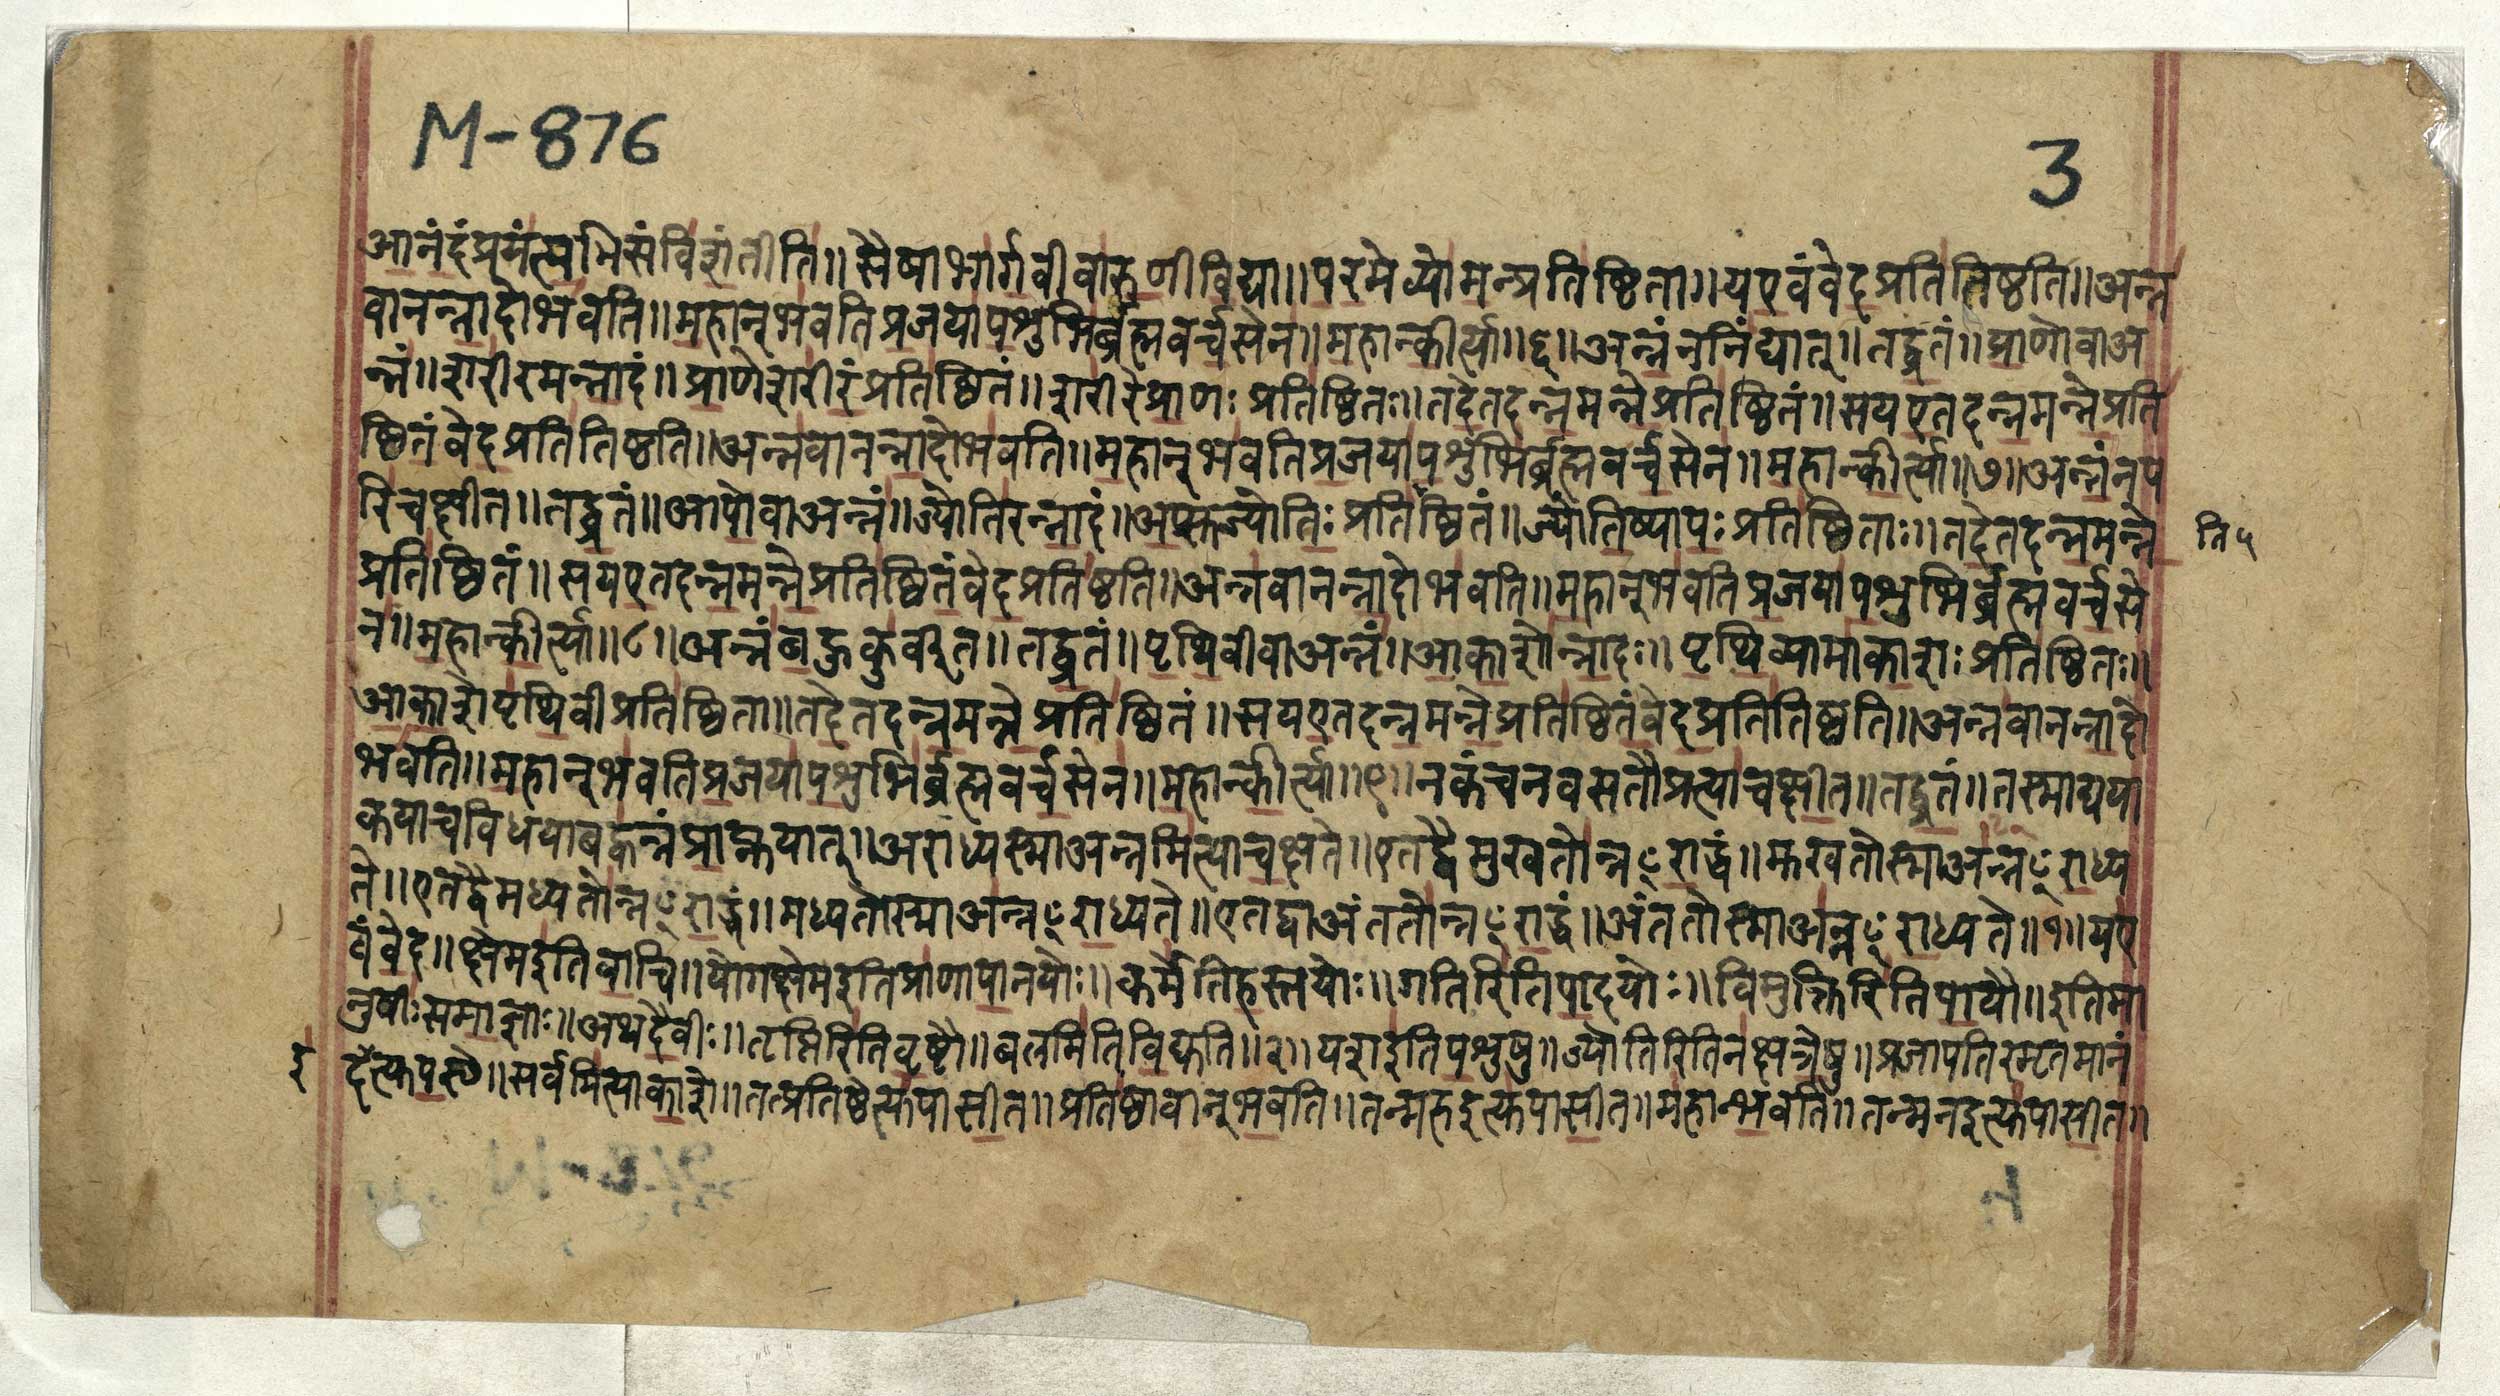 M-876
3
आनंदंप्रयंत्यभिसंविशंतीति॥सैषाभार्गवीवारुणीविद्या॥परमेव्योमन्प्रतिष्ठिता॥यएवंवेदप्रतितिष्ठति॥अन्न
वानन्नादोभवति॥महान्भवतिप्रजयापशुभिर्ब्रह्मवर्चसेन॥महान्कीर्त्या॥६॥अन्नंननिंद्यात्॥तद्व्रतं॥प्राणोवाअ
न्नं॥शरीरमन्नादं॥प्राणेशरीरंप्रतिष्ठितं॥शरीरेप्राणःप्रतिष्ठितः॥तदेतदन्नमन्नेप्रतिष्ठितं॥सयएतदन्नमन्नेप्रति
ष्ठितंवेदप्रतितिष्ठति॥अन्नवानन्नादोभवति॥महान्भवतिप्रजयापशुभिर्ब्रह्मवर्चसेन॥महान्कीर्त्या॥७॥अन्नंनप
रिचक्षीत॥तद्व्रतं॥आपोवाअन्नं॥ज्योतिरन्नादं॥अप्सुज्योतिःप्रतिष्ठितं॥ज्योतिष्यापःप्रतिष्ठिताः॥तदेतदन्नमन्ने
ति५
प्रतिष्ठितं॥सयएतदन्नमन्नेप्रतिष्ठितंवेदप्रतिष्ठति॥अन्नवानन्नादोभवति॥महान्भवतिप्रजयापशुभिर्ब्रह्मवर्चसे
न॥महान्कीर्त्या॥८॥अन्नंबहुकुर्वीत॥तद्व्रतं॥पृथिवीवाअन्नं॥आकाशोन्नादः॥पृथिव्यामाकाशःप्रतिष्ठितः॥
आकाशेपृथिवीप्रतिष्ठिता॥तदेतदन्नमन्नेप्रतिष्ठितं॥सयएतदन्नमन्नेप्रतिष्ठितंवेदप्रतितिष्ठति॥अन्नवानन्नादो
भवति॥महान्भवतिप्रजयापशुभिर्ब्रह्मवर्चसेन॥महान्कीर्त्या॥९॥नकंचनवसतौप्रत्याचक्षीत॥तद्व्रतं॥तस्माद्यया
कयाचविधयाबह्वन्नंप्राप्नुयात्॥अराध्यस्माअन्नमित्याचक्षते॥एतद्वैमुखतोन्नꣳराद्धं॥मुखतोस्माअन्नꣳराध्य
ते॥एतद्वैमध्यतोन्नꣳराद्धं॥मध्यतोस्माअन्नꣳराध्यते॥एतद्वाअंततोन्नꣳराद्धं॥अंततोस्माअन्नꣳराध्यते॥१॥यए
वंवेद॥क्षेमइतिवाचि॥योगक्षेमइतिप्राणापानयोः॥कर्मेतिहस्तयोः॥गतिरितिपादयोः॥विमुक्तिरितिपायौ॥इतिमा
नुषीःसमाज्ञाः॥अथदैवीः॥तृप्तिरितिवृष्टौ॥बलमितिविद्युति॥२॥यशइतिपशुषु॥ज्योतिरितिनक्षत्रेषु॥प्रजापतिरमृतमानं
इ
देत्युपस्थे॥सर्वमित्याकाशे॥तत्प्रतिष्ठेत्युपासीत॥प्रतिष्ठावान्भवति॥तन्महइत्युपासीत॥महान्भवति॥तन्मनइत्युपासीत॥